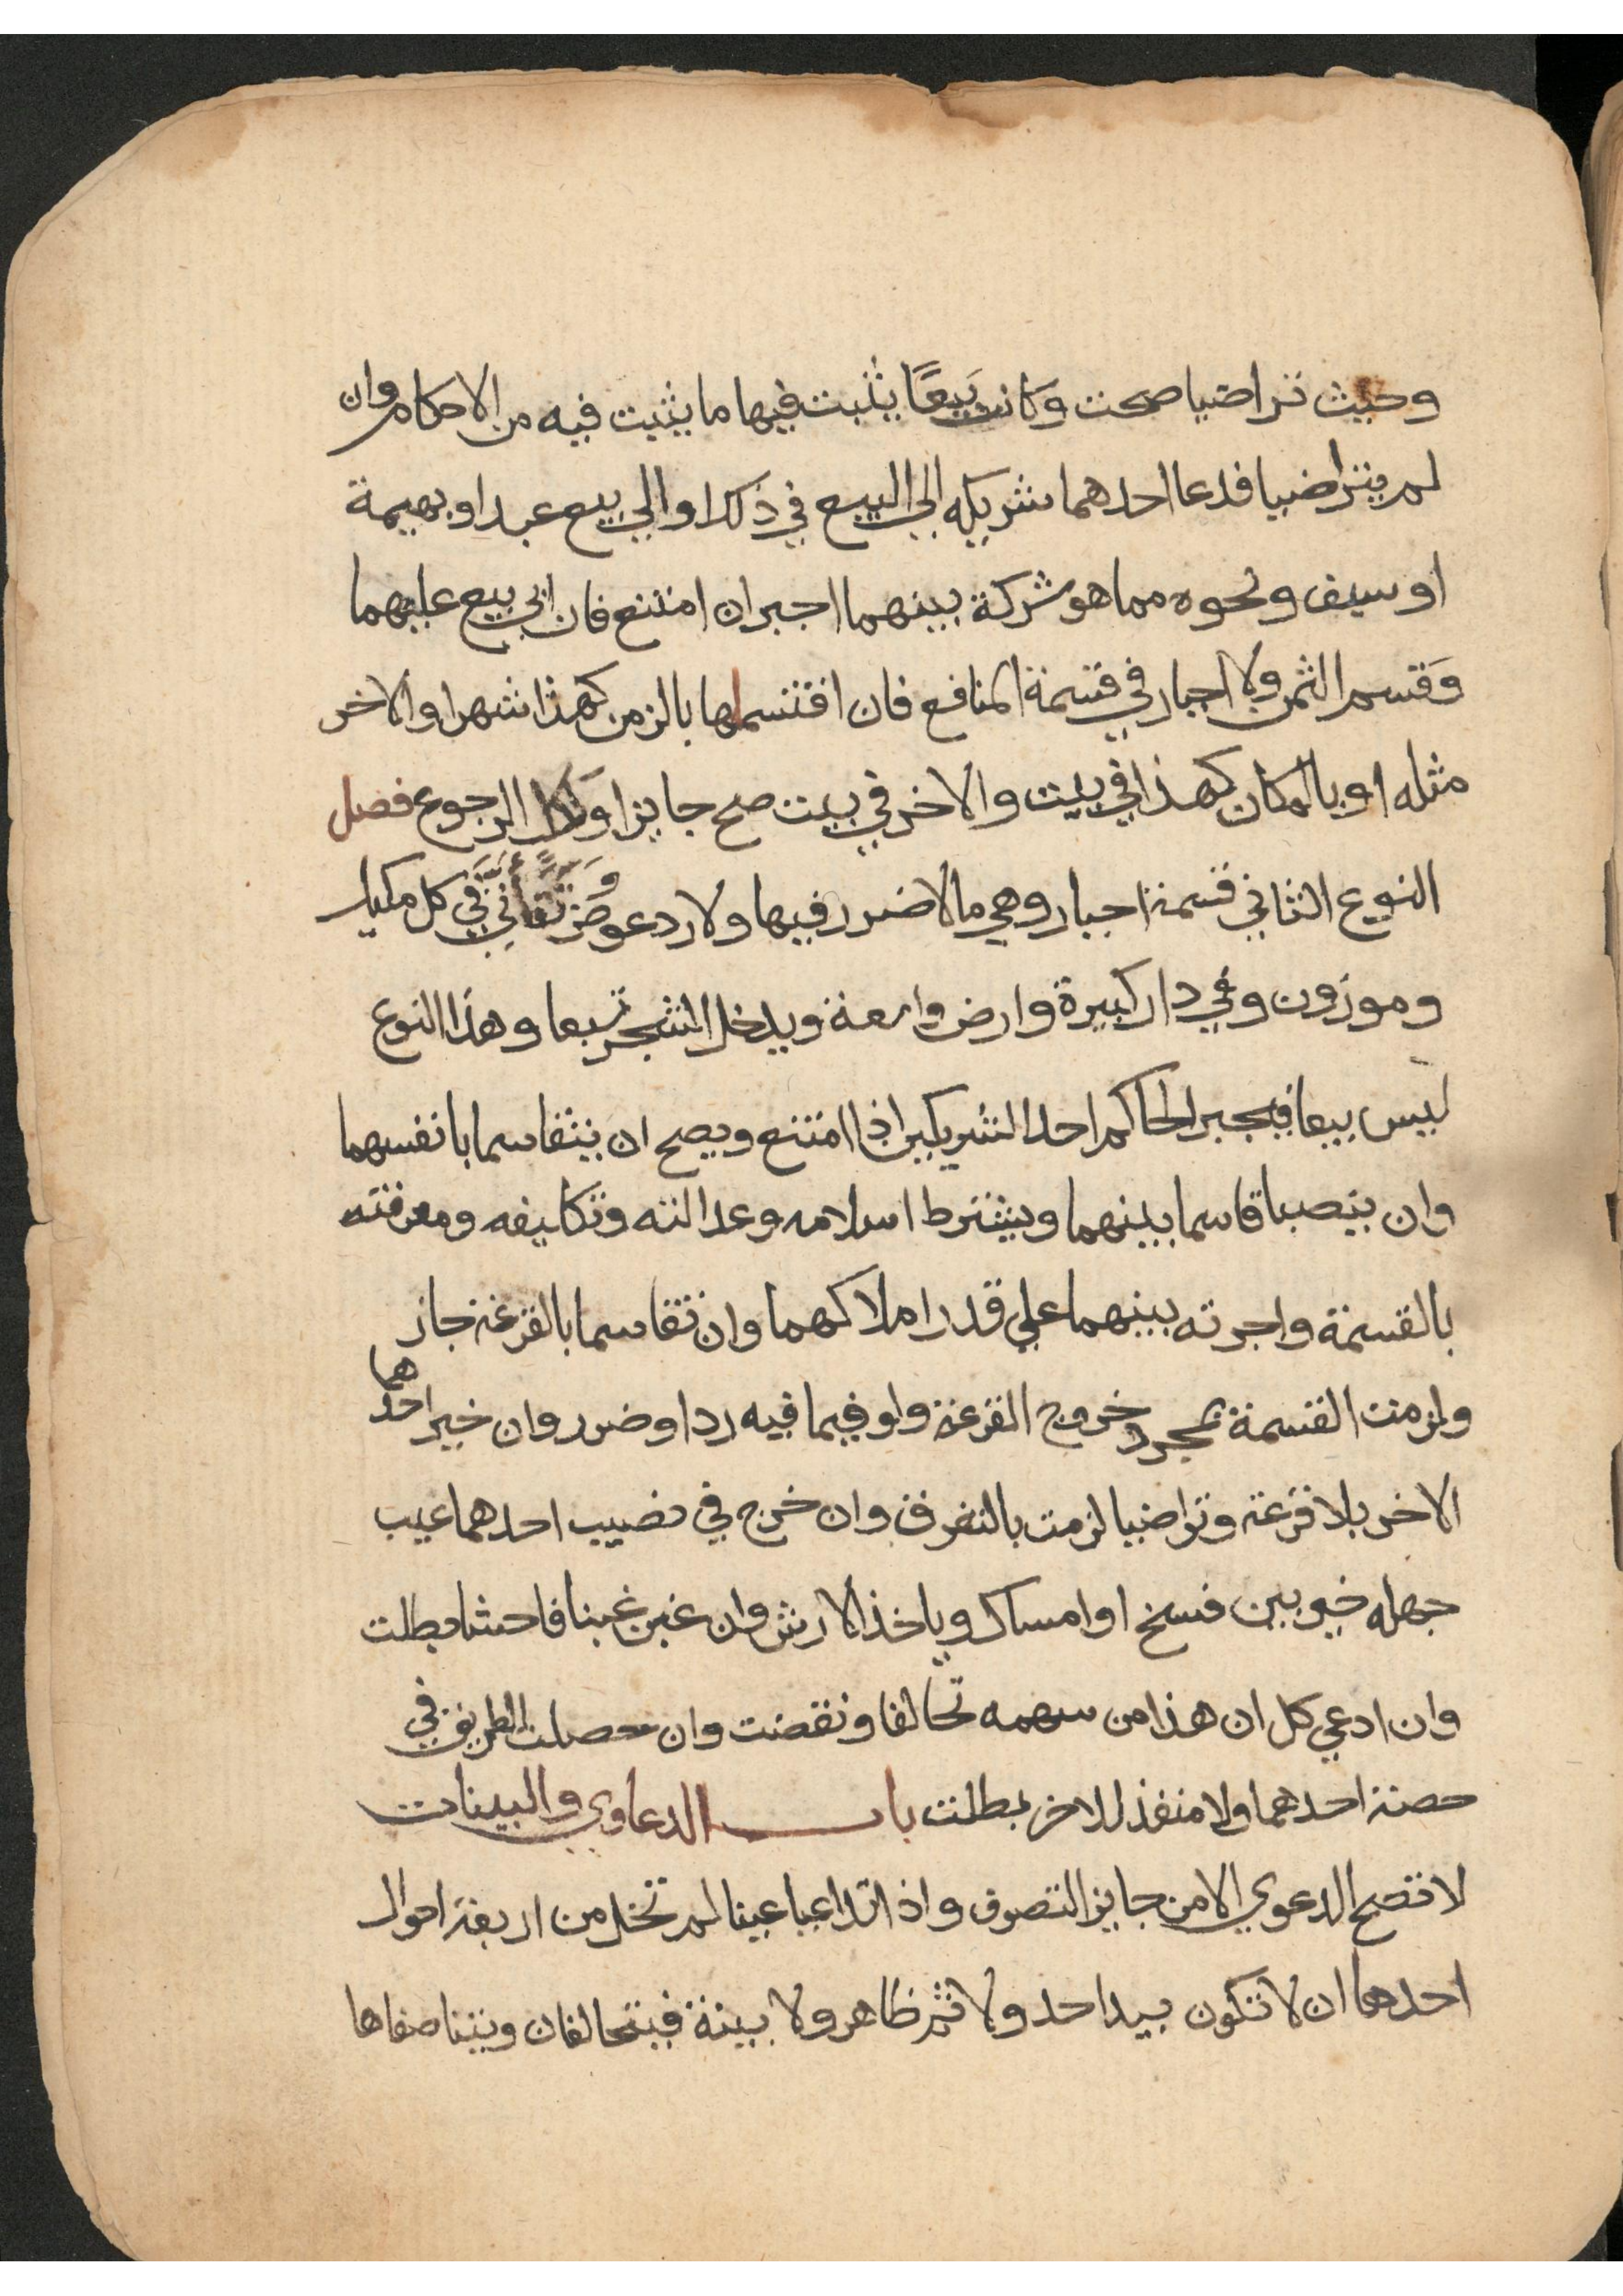 وحيث تراضيا صحت وكانت بيعًا يثبت فيها ما يثبت فيه من الاحكام وان
لم يتراضيا فدعا احدهما شريكه الى البيع في ذلك او الي بيع عبد او بهيمة
او سيف ونحوه مما هو شركة بينهما اجبر ان امتنع فان ابي بيع عليهما
وقسم الثمن ولا اجبار في قسمة المنافع فان اقتسماها بالزمن كهذا شهرا والاخر
مثله او بالمكان كهذا في بيت والاخر في بيت صح جايزا ولكل الرجوع فصل
النوع الثاني قسمة اجبار وهي ما لا ضرر فيها ولا رد عوض وتتأتى في كل مكيل
وموزون وفي دار كبيرة وارض واسعة ويدخل الشجر تبعا وهذا النوع
ليس بيعا فيجبر الحاكم احد الشريكين اذا امتنع ويصح ان يتقاسما بانفسهما
وان ينصبا قاسما بينهما ويشترط اسلامه وعدالته وتكليفه ومعرفته
بالقسمة واجرته بينهما علي قدر املاكهما وان تقاسما بالقرعة جاز
ولزمت القسمة بمجرد خروج القرعة ولو فيما فيه رد او ضرر وان خير احدهما
الاخر بلا قرعة وتراضيا لزمت بالتفرق وان خرج في نصيب احدهما عيب
جهله خير بين فسخ او امساك وياخذ الارش وان غبن غبنا فاحشا بطلت
وان ادعي كل ان هذا من سهمه تحالفا ونقضت وان حصلت الطريق في
حصة احدهما ولا منفذ للاخر بطلت باب الدعاوي والبينات
لا تصح الدعوي الا من جايز التصرف واذا تداعيا عينا لم تخل من اربعة احوال
احدها ان لا تكون بيد احد ولا ثم ظاهر ولا بينة فيتحالفان ويتناصفاها